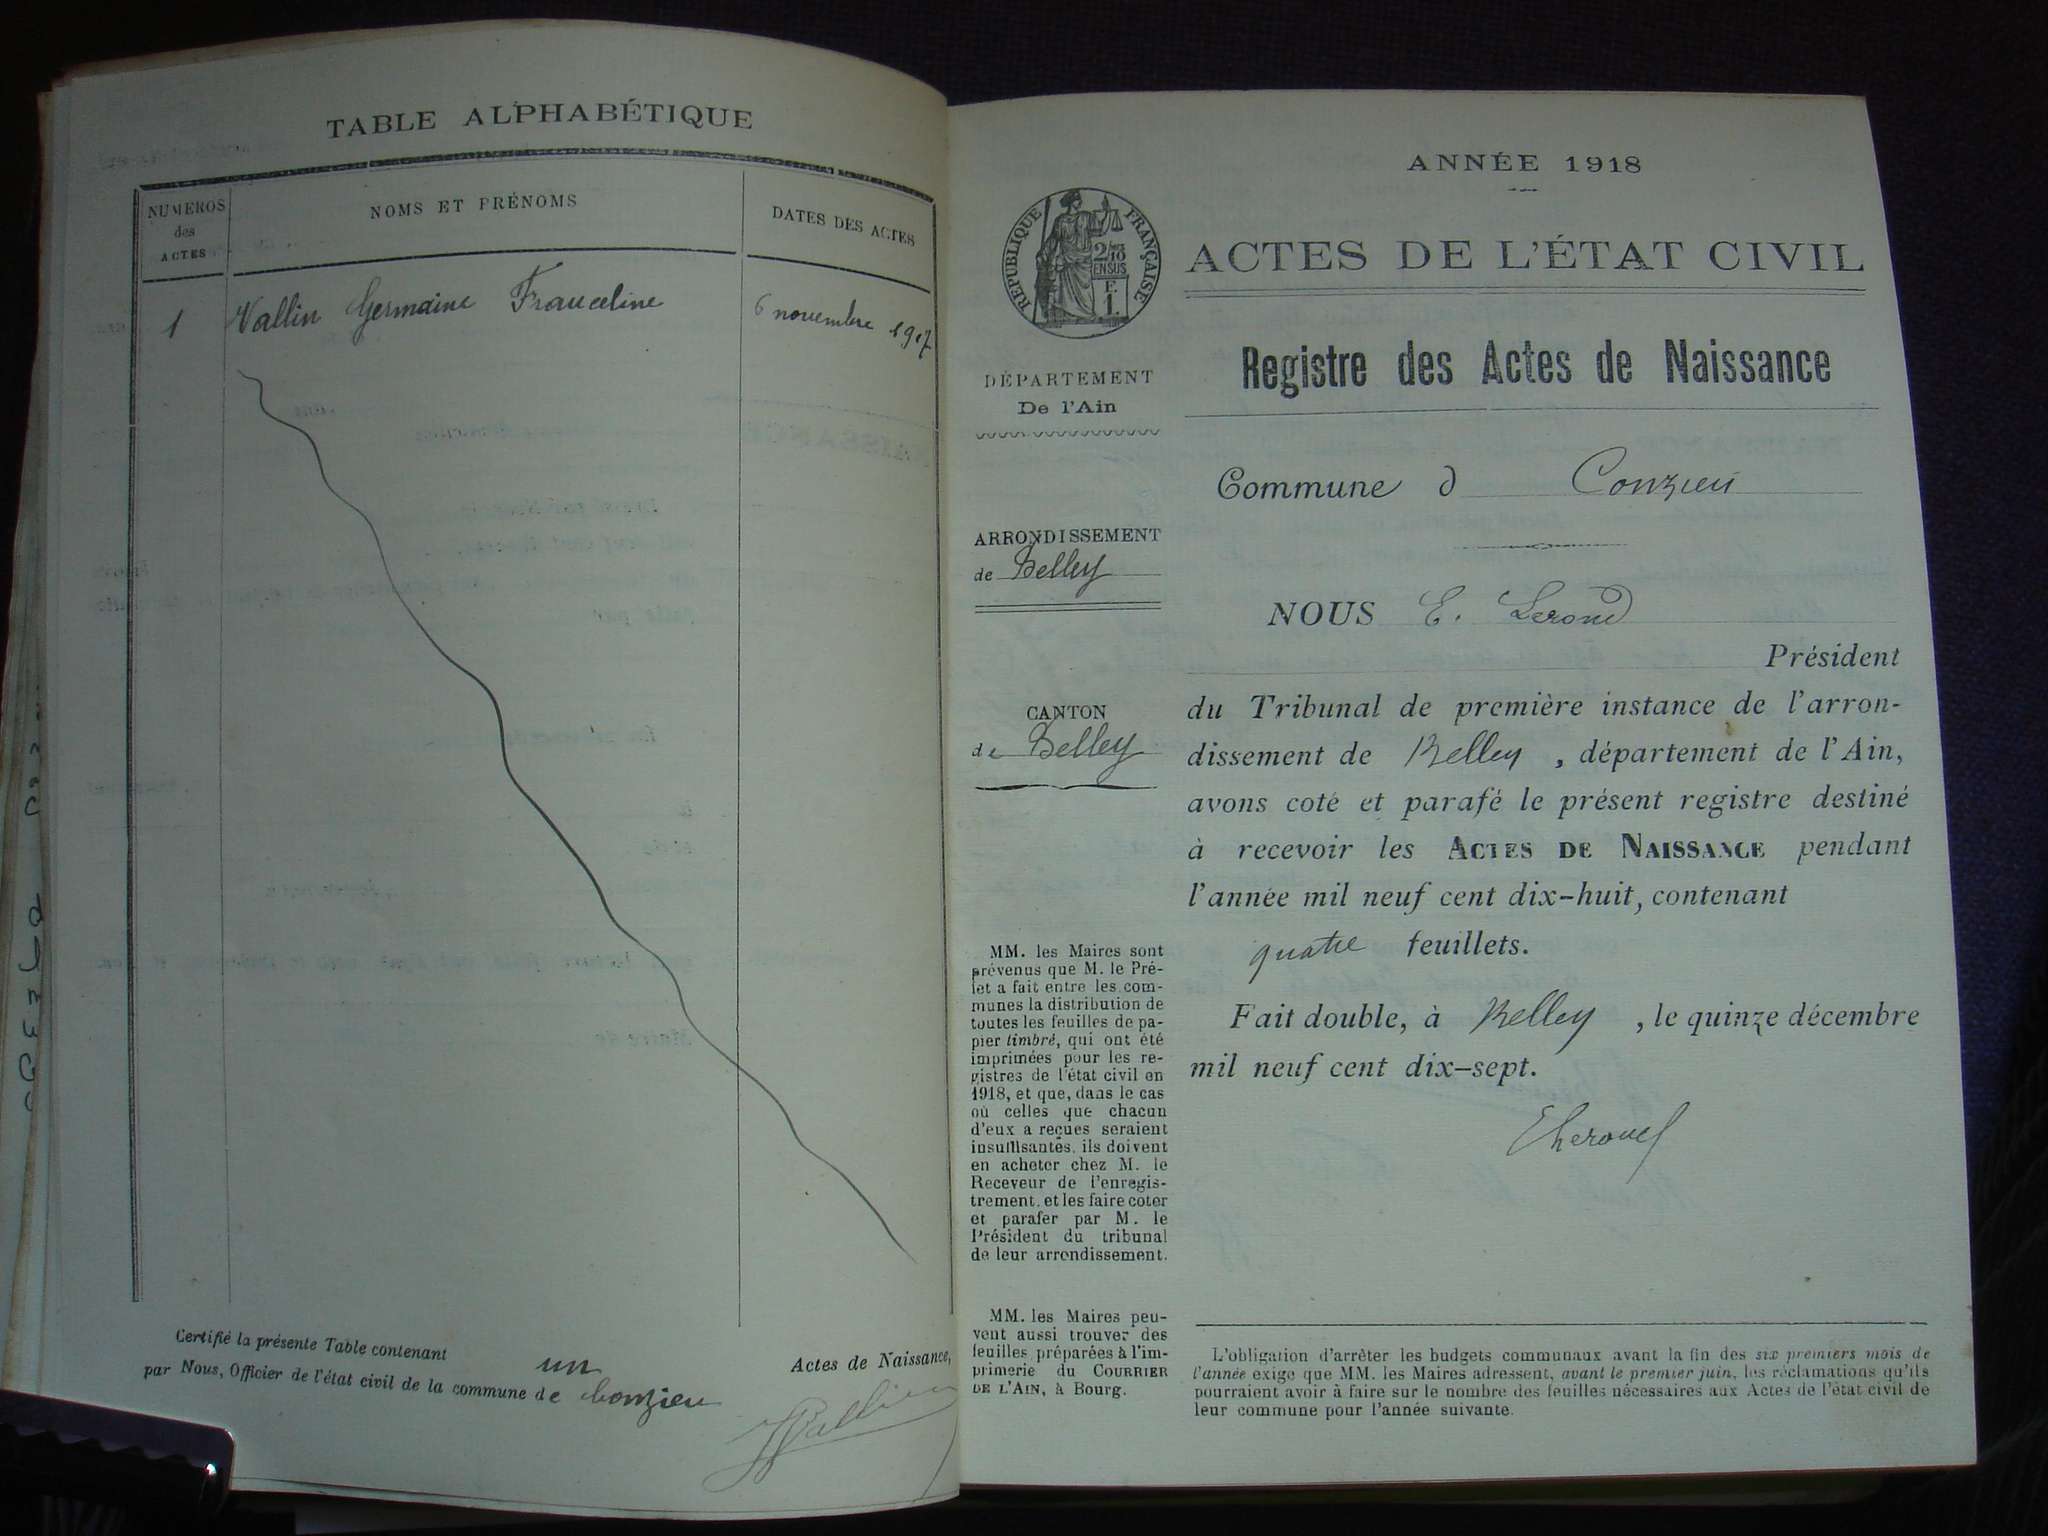 TABLE ALPHABÉTIQUE
NUMEROS
des
ACTES
NOMS ET PRÉNOMS
DATES DES ACTES
1
Vallin Germaine Franceline
6 novembre 1917
Certifié la présente Table contenant un Actes de Naissance,
par Nous, Officier de l'état civil de la commune de Conzieu
ANNÉE 1918
RÉPUBLIQUE FRANÇAISE
2/10
EN SUS
F.
1.
ACTES DE L'ÉTAT CIVIL
Registre des Actes de Naissance
DÉPARTEMENT
De l'Ain
ARRONDISSEMENT
de Belley
CANTON
de Belley
MM. les Maires sont
prévenus que M. le Pré-
fet a fait entre les com-
munes la distribution de
toutes les feuilles de pa-
pier timbré, qui ont été
imprimées pour les re-
gistres de l'état civil en
1918, et que, dans le cas
où celles que chacun
d'eux a reçues seraient
insuffisantes, ils doivent
en acheter chez M. le
Receveur de l'enregis-
trement, et les faire coter
et parafer par M. le
Président du tribunal
de leur arrondissement.
MM. les Maires peu-
vent aussi trouver des
feuilles préparées à l'im-
primerie du COURRIER
DE L'AIN, à Bourg.
Commune d Conzieu
NOUS E. Lerond
Président
du Tribunal de première instance de l'arron-
dissement de Belley, département de l'Ain,
avons coté et parafé le présent registre destiné
à recevoir les ACTES DE NAISSANCE pendant
l'année mil neuf cent dix-huit, contenant
quatre feuillets.
Fait double, à Belley, le quinze décembre
mil neuf cent dix-sept.
L'obligation d'arrêter les budgets communaux avant la fin des six premiers mois de
l'année exige que MM. les Maires adressent, avant le premier juin, les réclamations qu'ils
pourraient avoir à faire sur le nombre des feuilles nécessaires aux Actes de l'état civil de
leur commune pour l'année suivante.